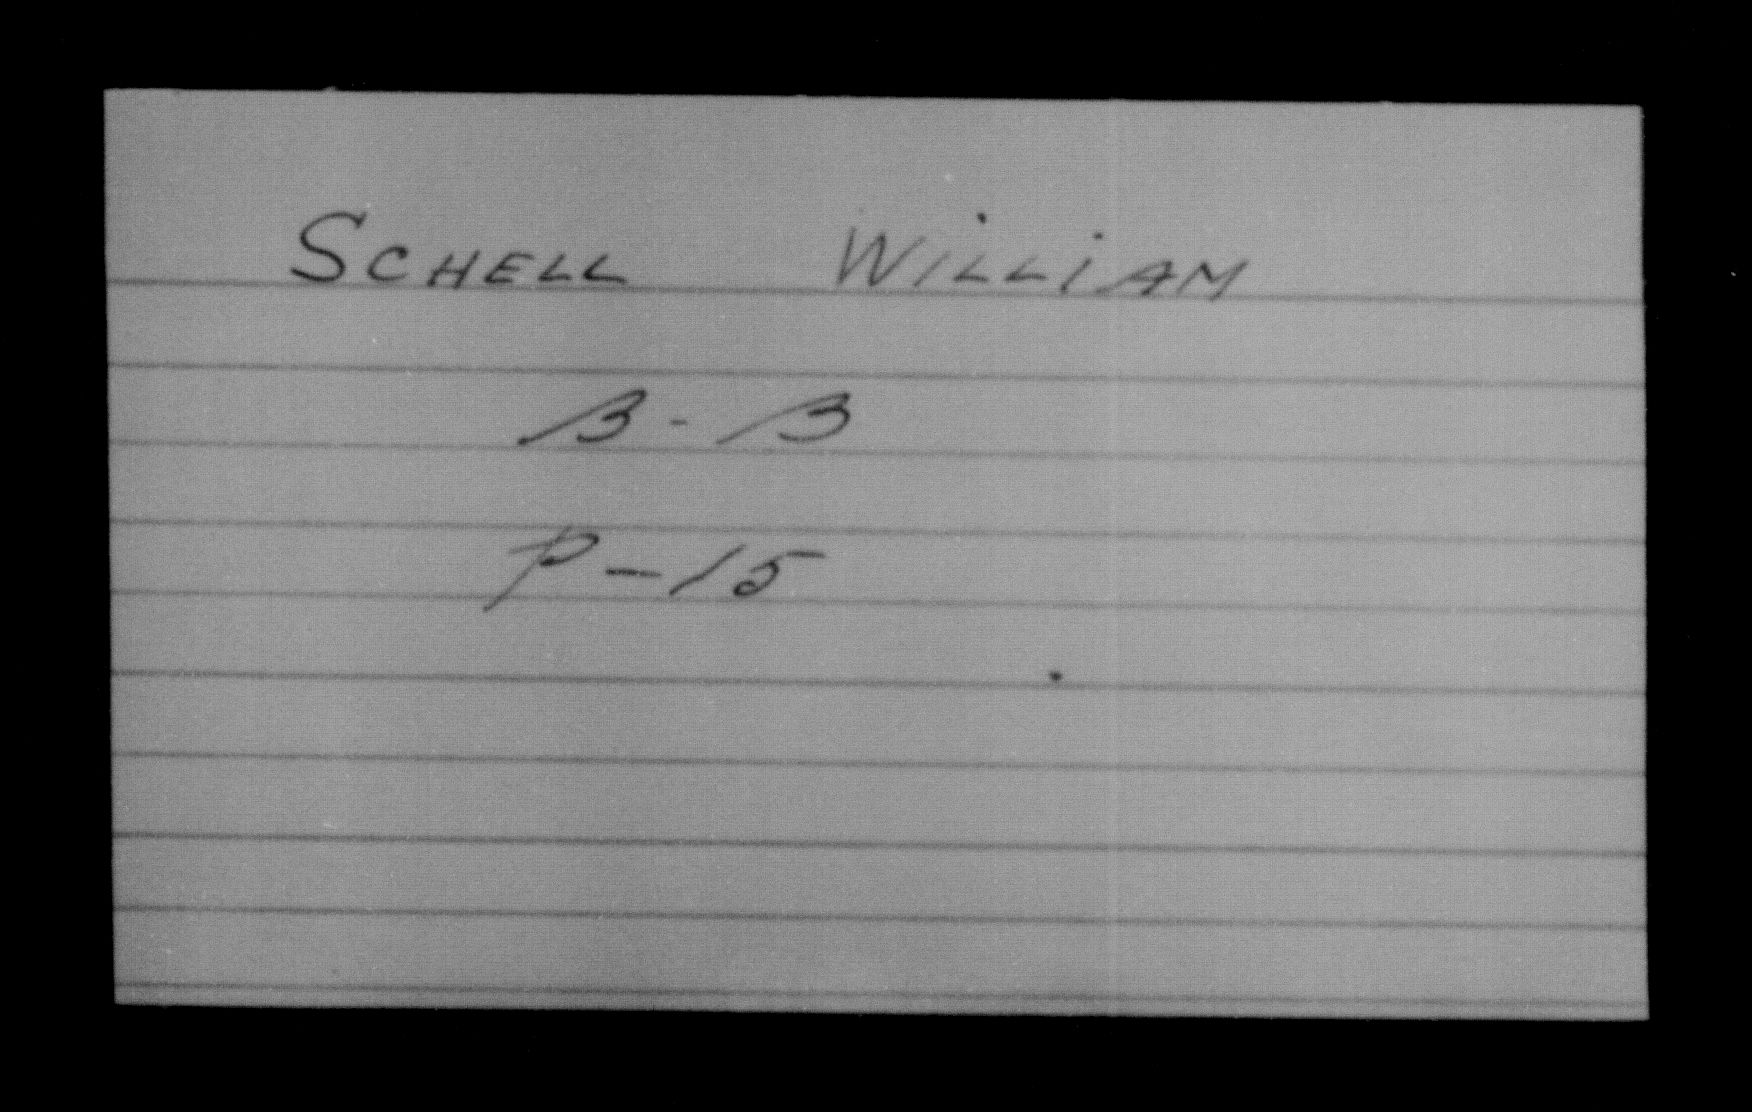 SCHELL WILLIAM
B-B
P-15